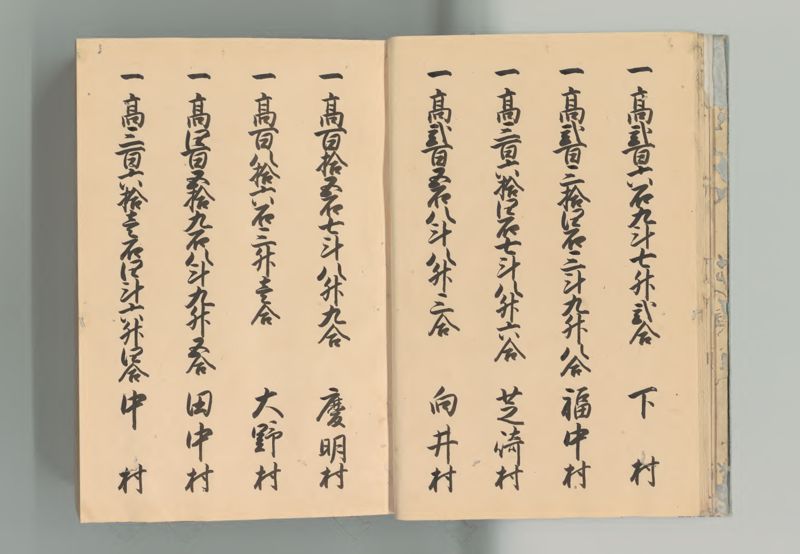 一高弐百六石九斗七升弐合 下村
一高弐百三拾四石三斗九升八合 福中村
一高三百六拾四石七斗八升六合 芝崎村
一高弐百五石八斗八升三合 向井村
一高百拾五石七斗八升九合 慶明村
一高百八拾六石三升壱合 大野村
一高四百五拾九石八斗九升五合 田中村
一高三百六拾壱石四斗六升四合 中村